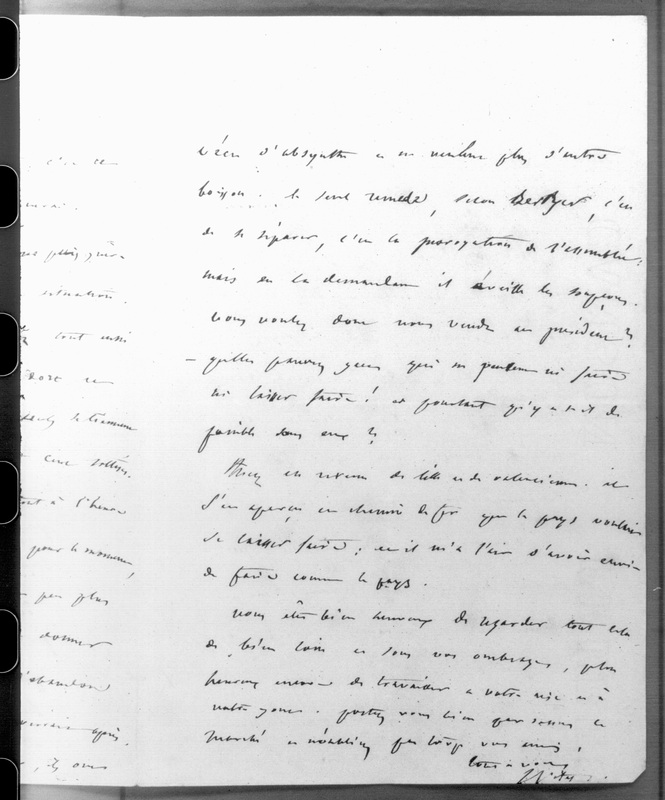 c'en ce
plus guère
situation.
tout aussi
se tiennent
cent sottises.
tout à l'heure
pour le moment,
pas plus
donner
l'abandon
après.
, ils ont
d'absynthe et ne veulent plus d'autre
boisson. le seul remède, selon Berryer, c'en
de se séparer, c'en la prorogation de l'assemblée:
mais en la demandant il éveille les soupçons.
vous voulez donc nous vendre au président?
– quelles pauvres gens qui ne peuvent ni faire
ni laisser faire! et pourtant qu'y a-t-il de
possible sans eux?
Thiers en revenu de Lille et de valenciennes. il
s'en aperçu en chemin de fer que le pays voulait
se laisser faire; et il m'a l'air d'avoir envie
de faire comme le pays.
vous êtes bien heureux de regarder tout cela
de bien loin et sous vos ombrages, plus
heureux encore de travailler à votre aise et à
votre gout. portez vous bien par dessus le
marché et n'oubliez pas trop vos amis,
tout à vous